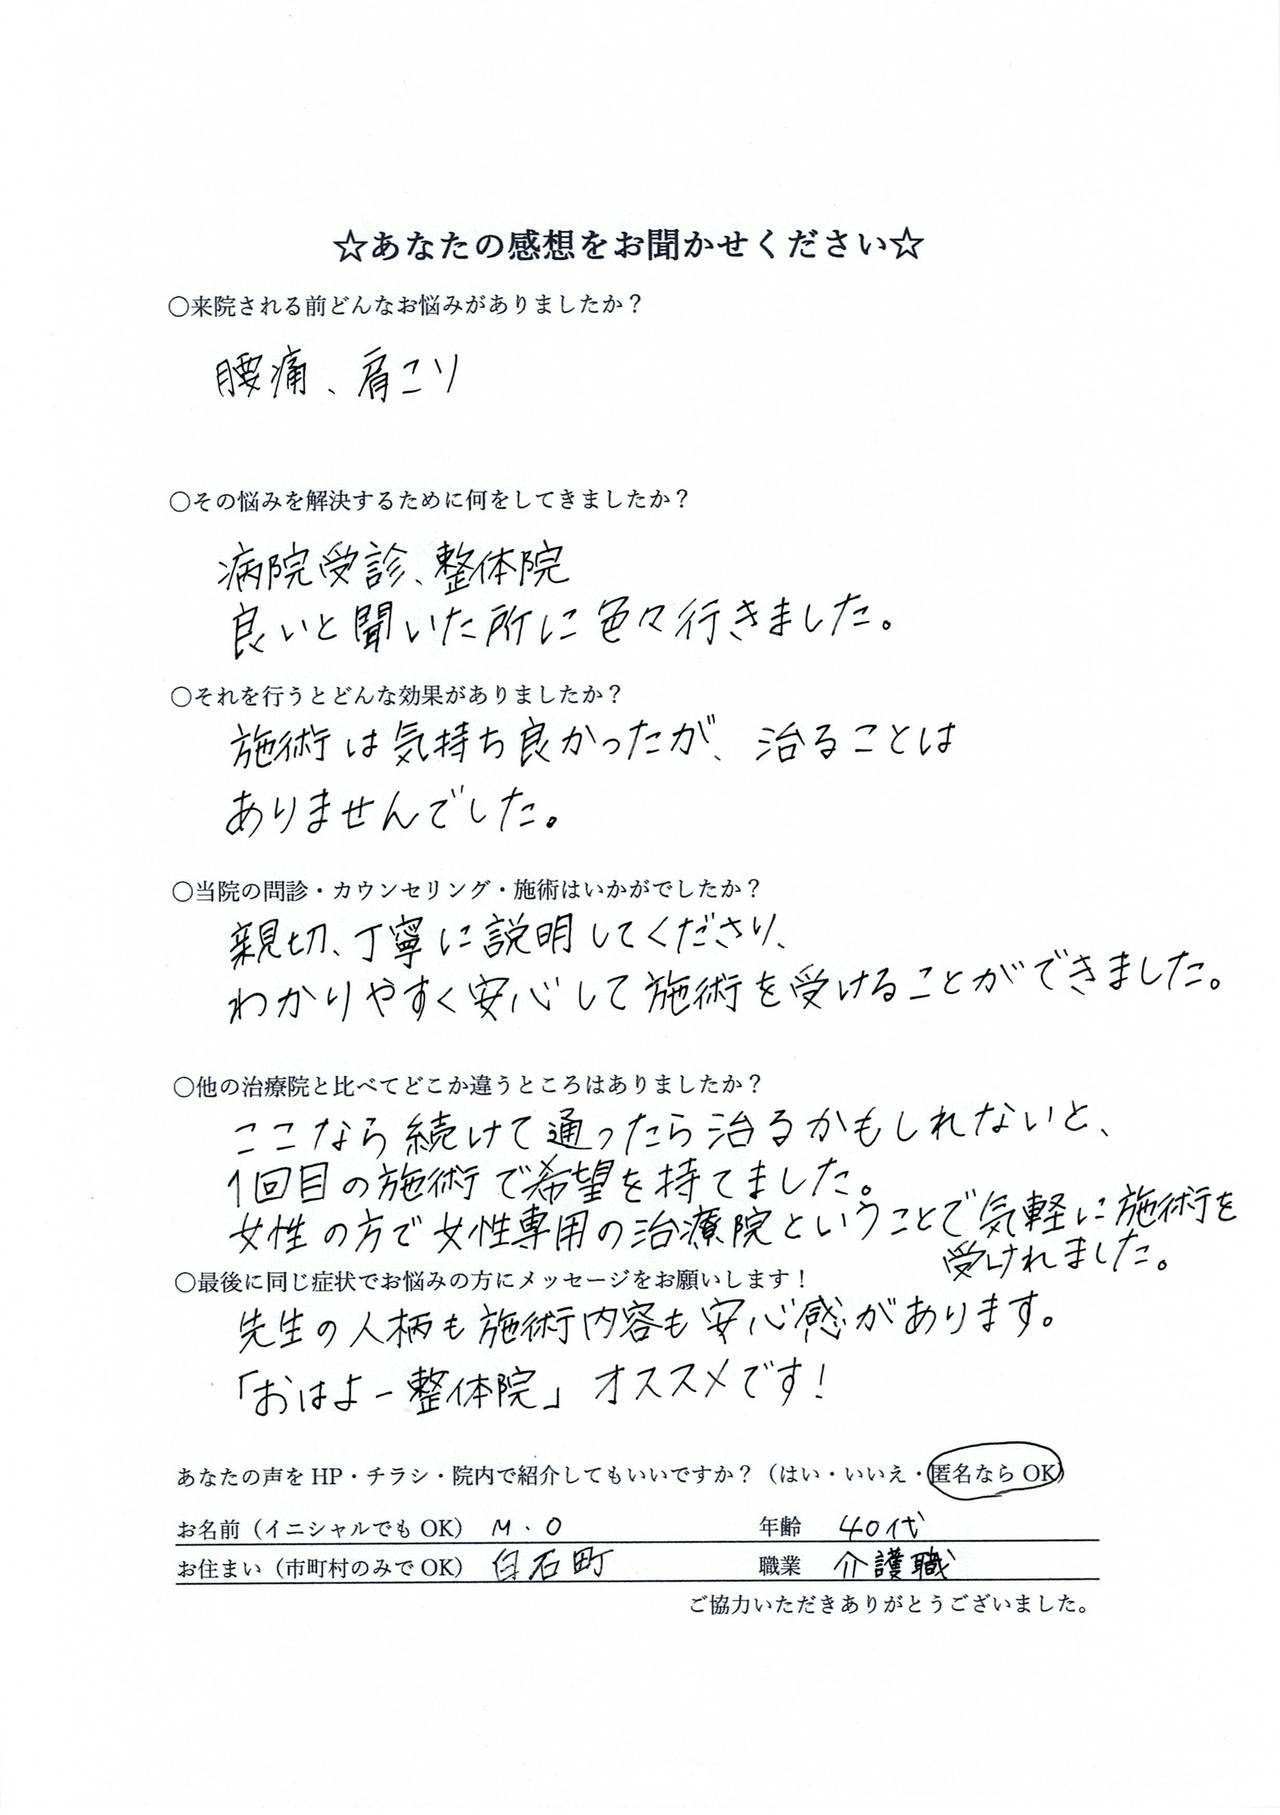 ☆あなたの感想をお聞かせください☆
〇来院される前どんなお悩みがありましたか？
腰痛、肩こり
〇その悩みを解決するために何をしてきましたか？
病院受診、整体院
良いと聞いた所に色々行きました。
〇それを行うとどんな効果がありましたか？
施術は気持ち良かったが、治ることは
ありませんでした。
〇当院の問診・カウンセリング・施術はいかがでしたか？
親切、丁寧に説明してくださり、
わかりやすく安心して施術を受けることができました。
〇他の治療院と比べてどこか違うところはありましたか？
ここなら続けて通ったら治るかもしれないと、
1回目の施術で希望を持てました。
女性の方で女性専用の治療院ということで気軽に施術を
受けれました。
〇最後に同じ症状でお悩みの方にメッセージをお願いします！
先生の人柄も施術内容も安心感があります。
「おはよー整体院」オススメです！
あなたの声を HP・チラシ・院内で紹介してもいいですか？（はい・いいえ・匿名なら OK）
お名前（イニシャルでも OK） M・O 年齢 40代
お住まい（市町村のみで OK） 白石町 職業 介護職
ご協力いただきありがとうございました。